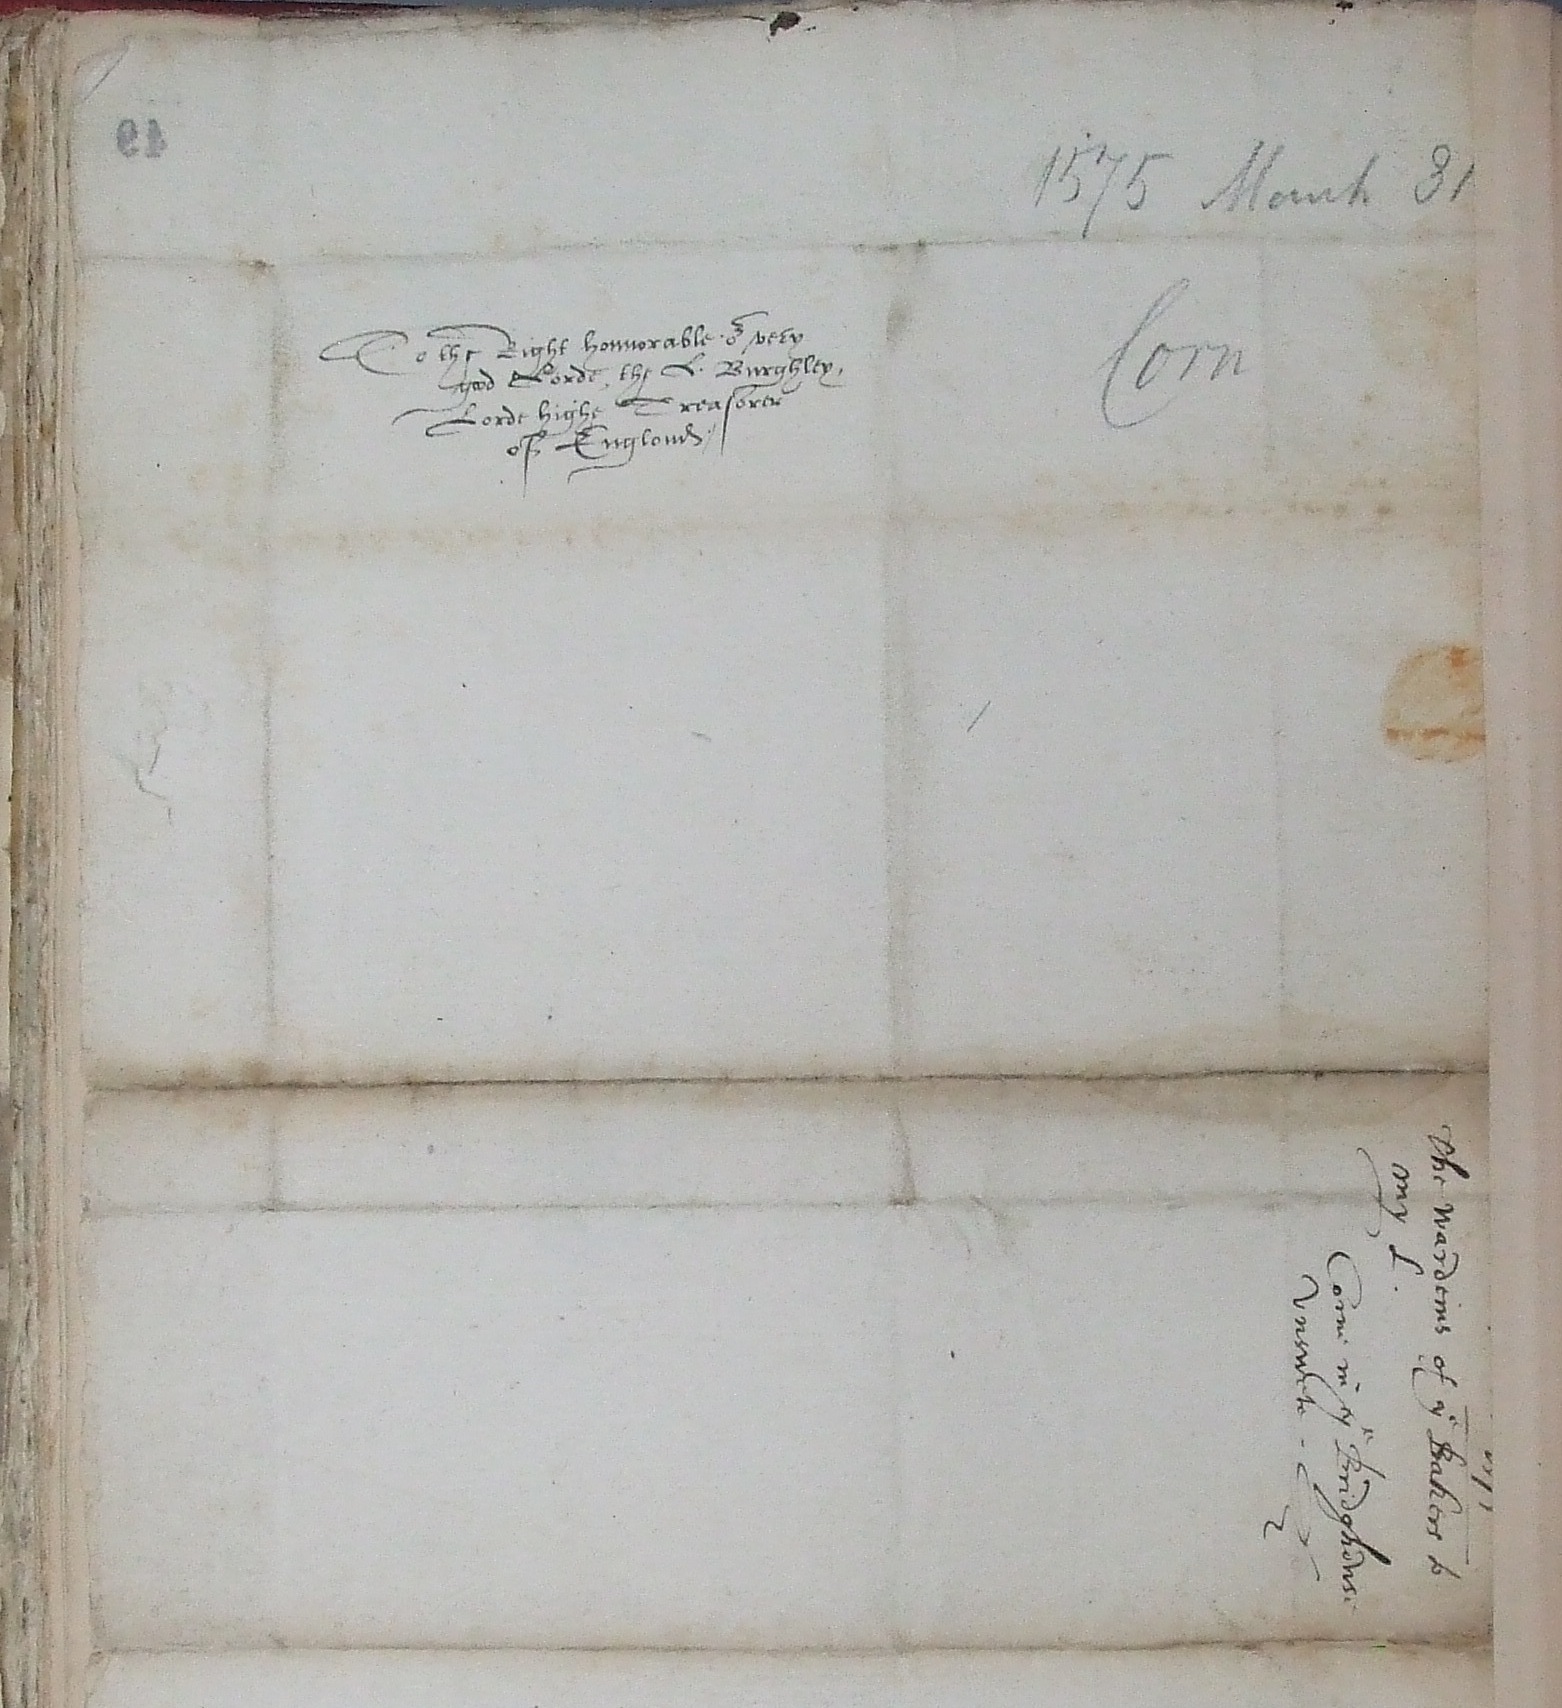 1575 March 31
Corn
To the Right honnorable or very
good Lorde, the L. Burghley,
Lorde highe Treasorer
of Englond
The wardeins of ye Bakers to
my L.
Corne in ye Bridghowse